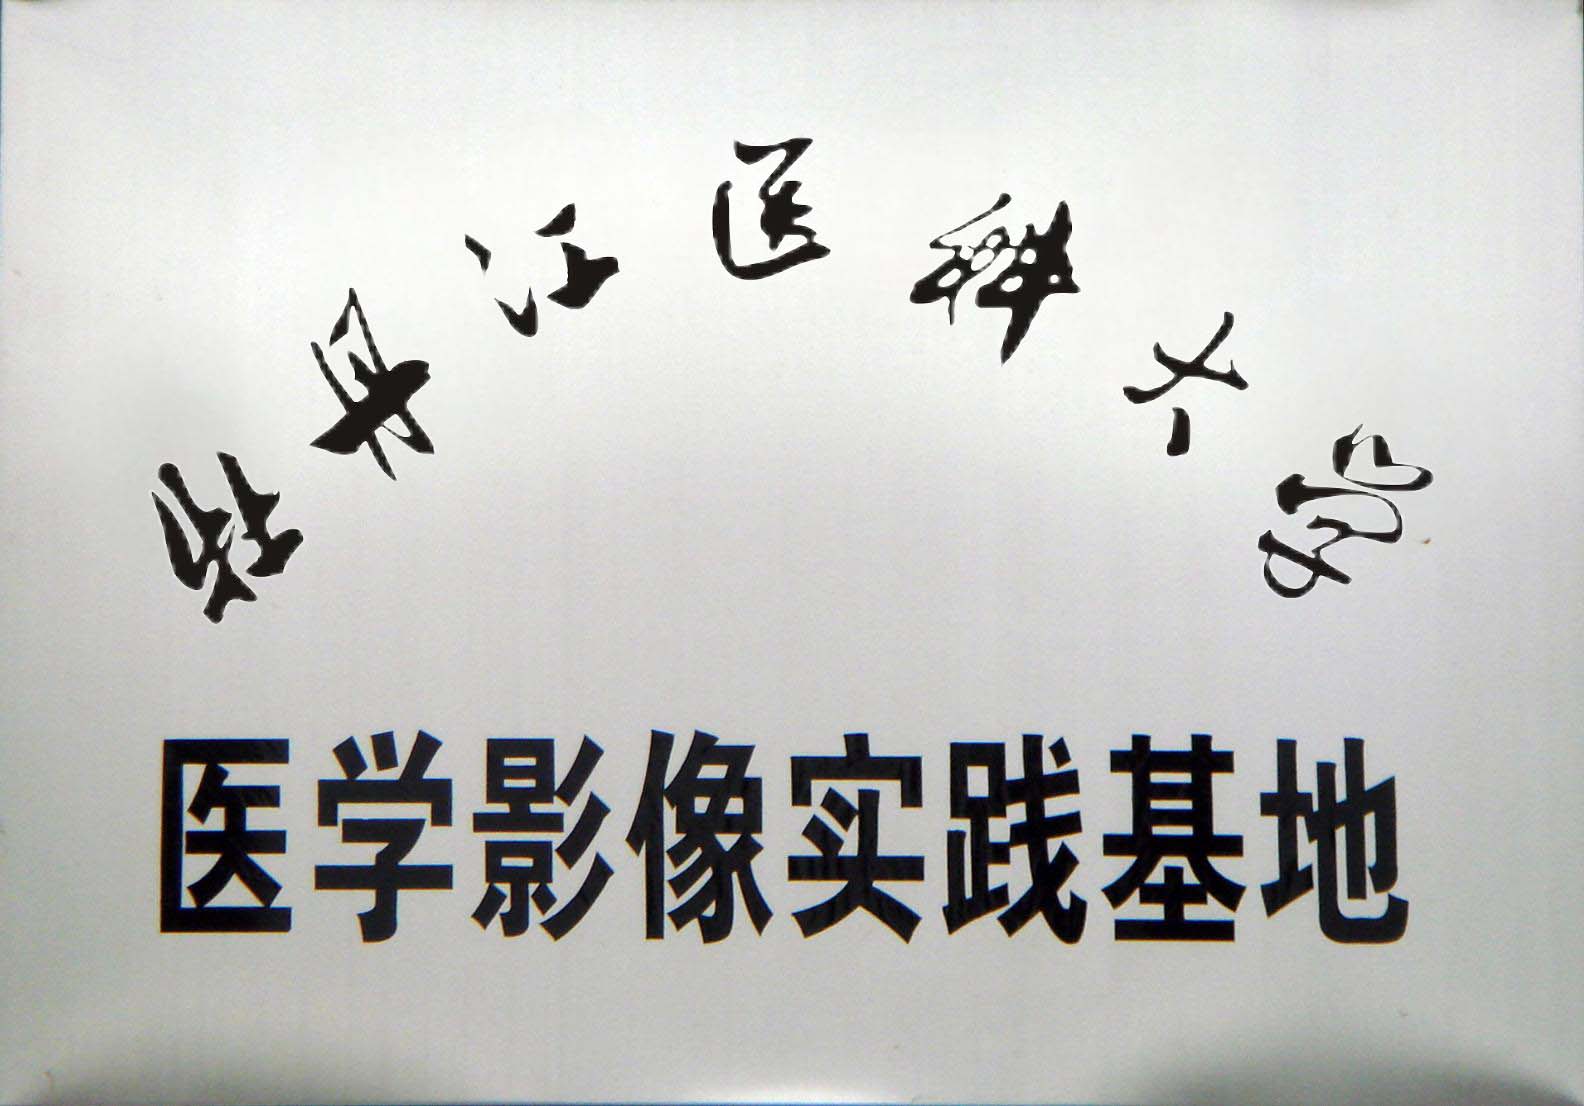 牡丹江医科大学
医学影像实践基地